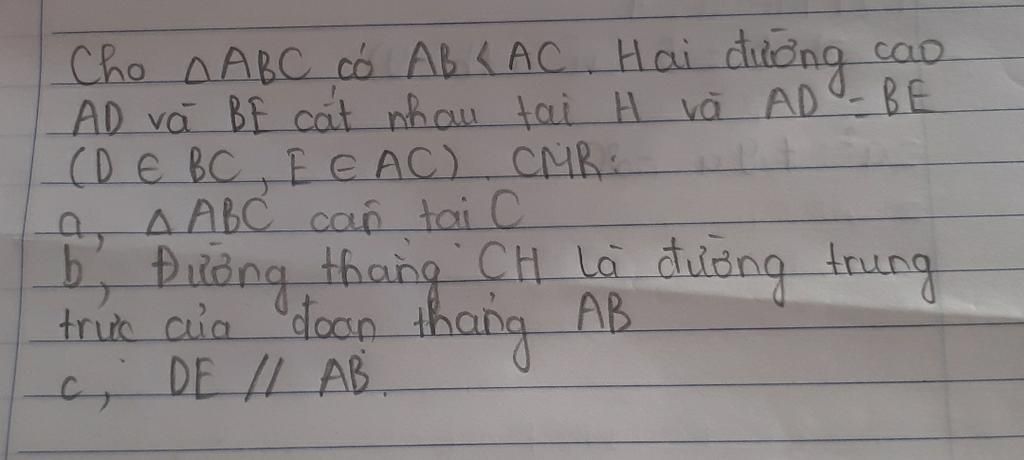 Cho △ABC có AB < AC. Hai đường cao
AD và BE cắt nhau tại H và AD = BE
(D ∈ BC, E ∈ AC). CMR:
a, △ABC cân tại C
b, Đường thẳng CH là đường trung
trực của đoạn thẳng AB
c, DE // AB.